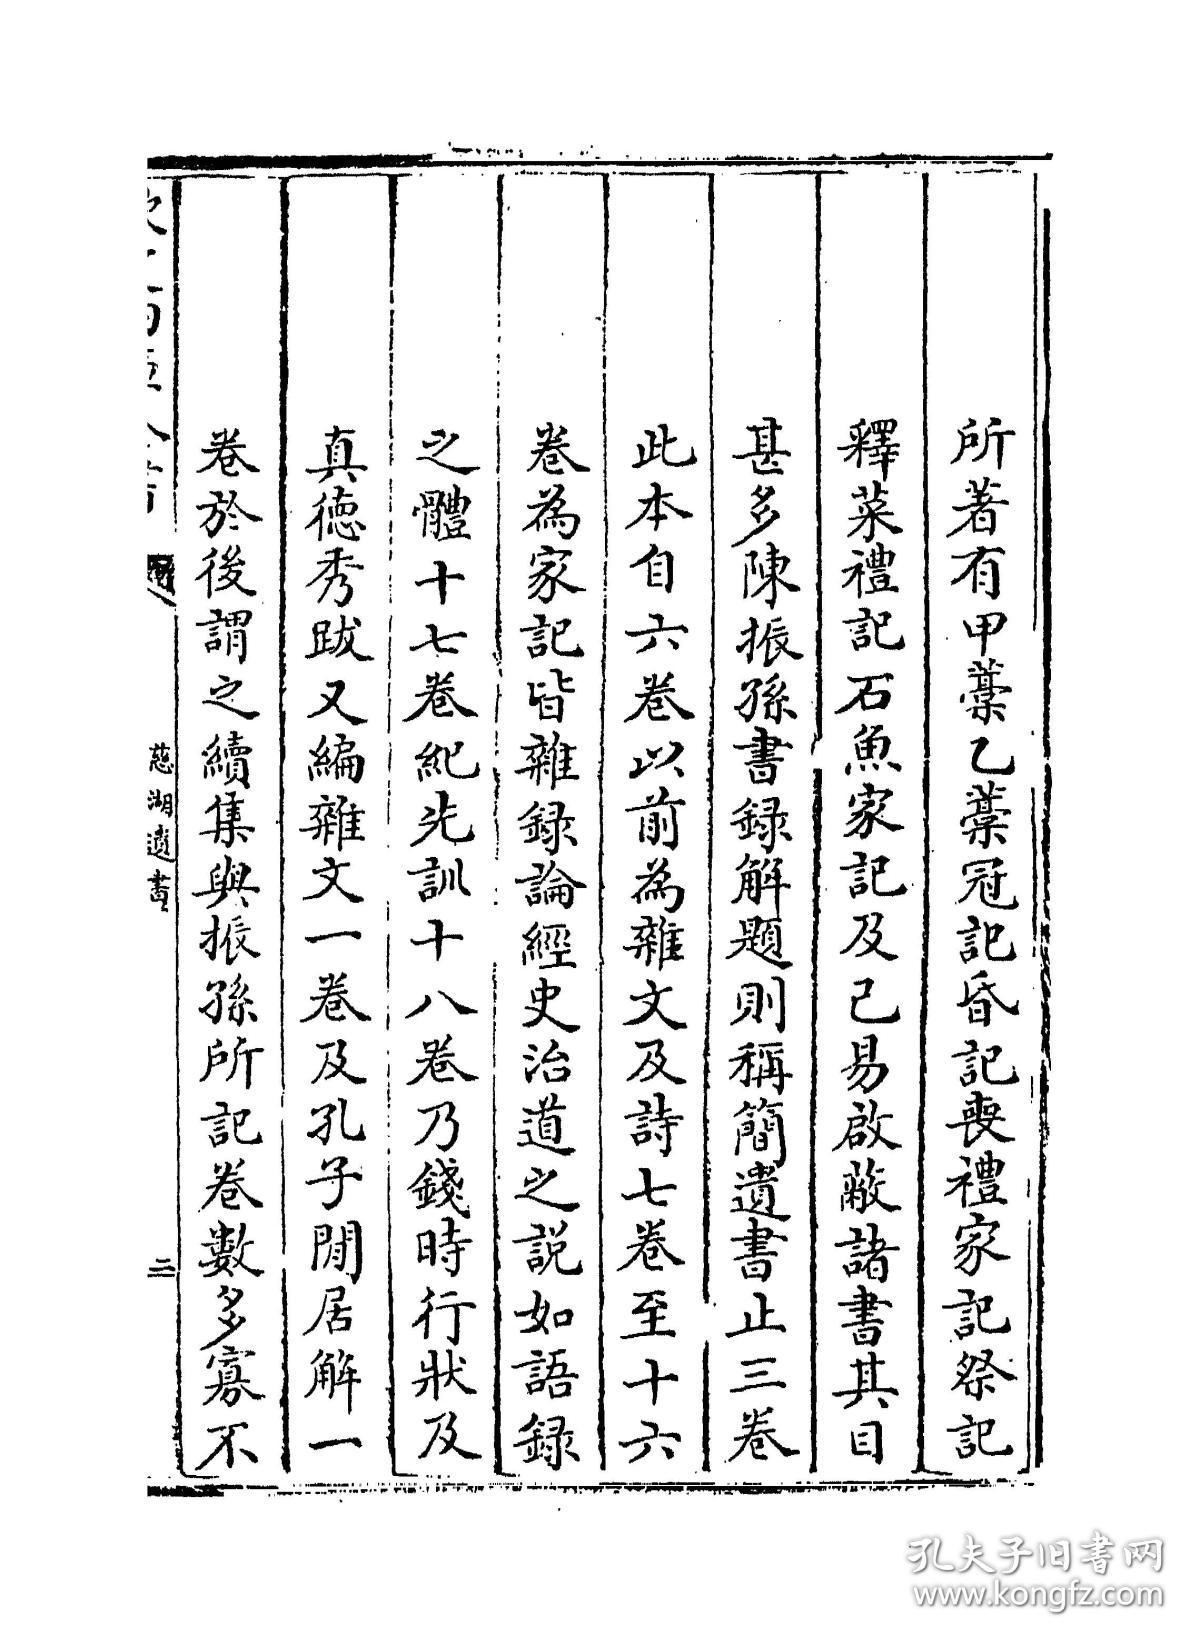 所著有甲藁乙藁冠記昏記喪禮家記祭記
釋菜禮記石魚家記及己易啟蔽諸書其目
甚多陳振孫書録解題則稱簡遺書止三卷
此本自六卷以前為雜文及詩七卷至十六
卷為家記皆雜録論經史治道之説如語録
之體十七卷紀先訓十八卷乃錢時行狀及
真德秀跋又編雜文一卷及孔子閒居解一
卷於後謂之續集與振孫所記卷數多寡不
慈湖遺書
二
孔夫子旧书网
www.kongfz.com